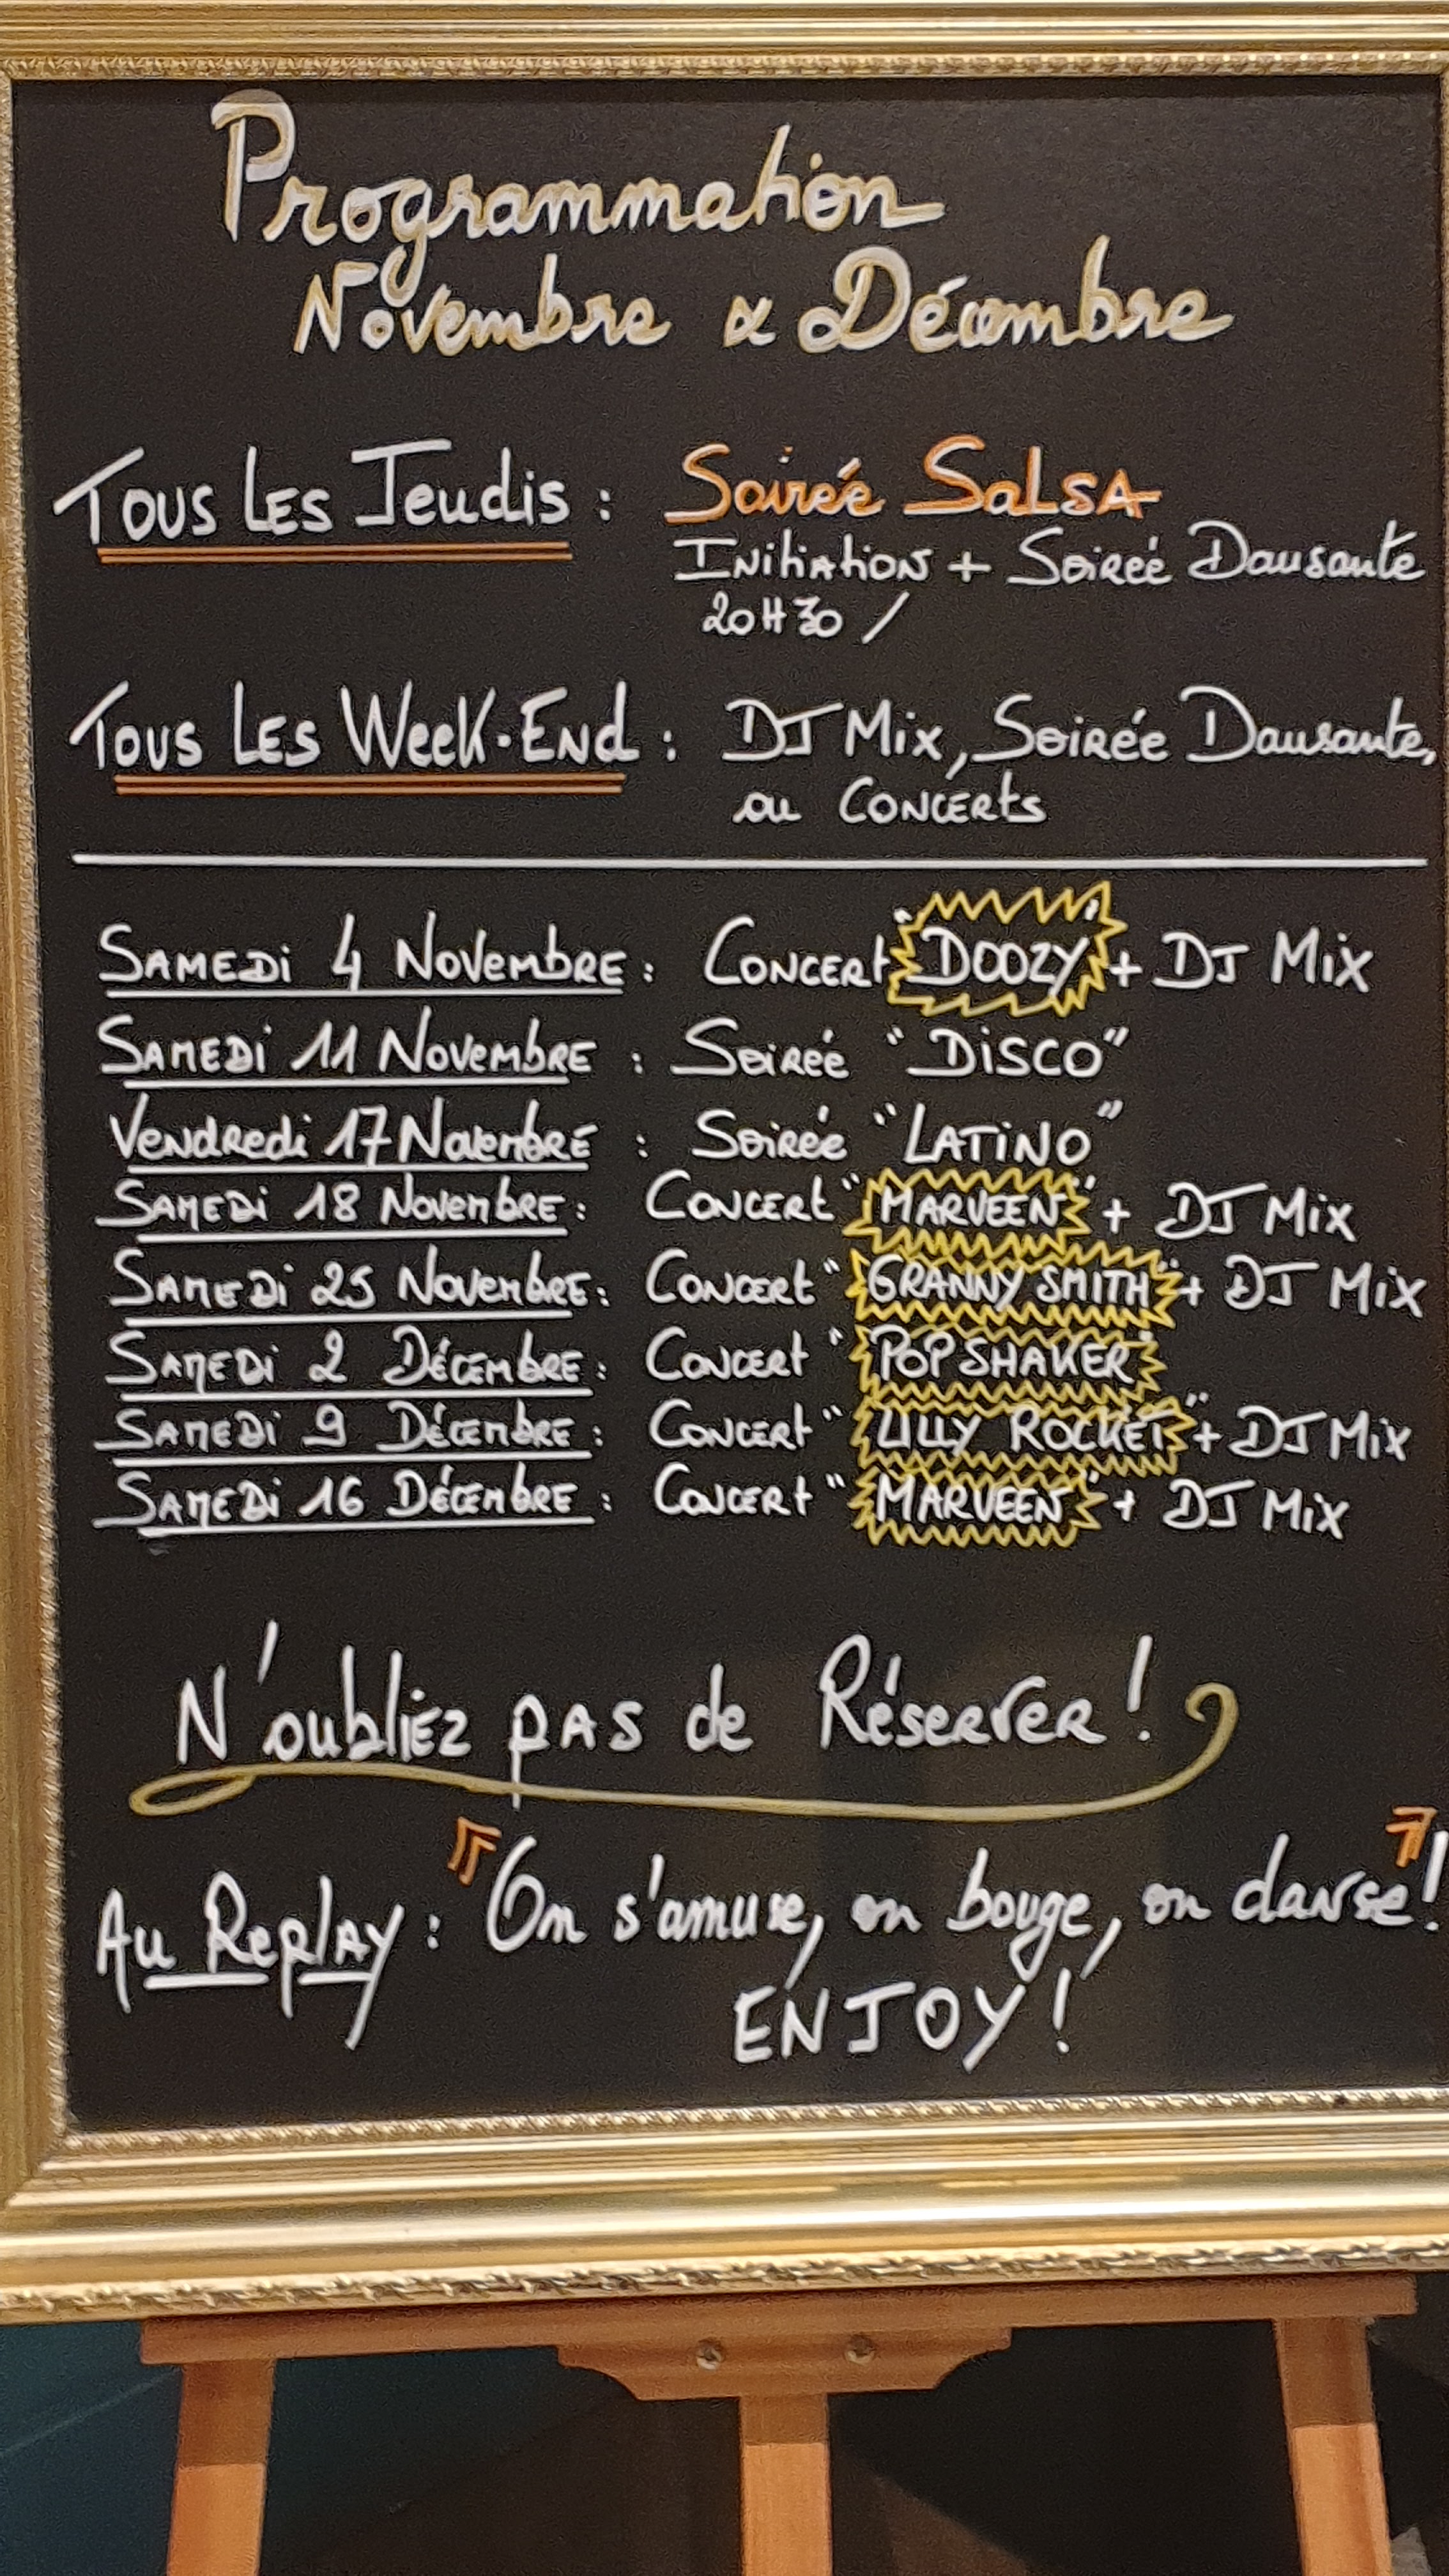 Programmation
Novembre & Décembre
Tous Les Jeudis : Soirée Salsa
Initiation + Soirée Dansante
20H30 /
Tous Les Week-End : DJ Mix, Soirée Dansante,
ou Concerts
Samedi 4 Novembre : Concert "DOOZY" + DJ Mix
Samedi 11 Novembre : Soirée "DISCO"
Vendredi 17 Novembre : Soirée "LATINO"
Samedi 18 Novembre : Concert "MARVEEN" + DJ Mix
Samedi 25 Novembre : Concert "GRANNY SMITH" + DJ Mix
Samedi 2 Décembre : Concert "POP SHAKER"
Samedi 9 Décembre : Concert "LILLY ROCKET" + DJ Mix
Samedi 16 Décembre : Concert "MARVEEN" + DJ Mix
N'oubliez pas de Réserver !
Au Replay : "On s'amuse, on bouge, on danse" !
ENJOY !